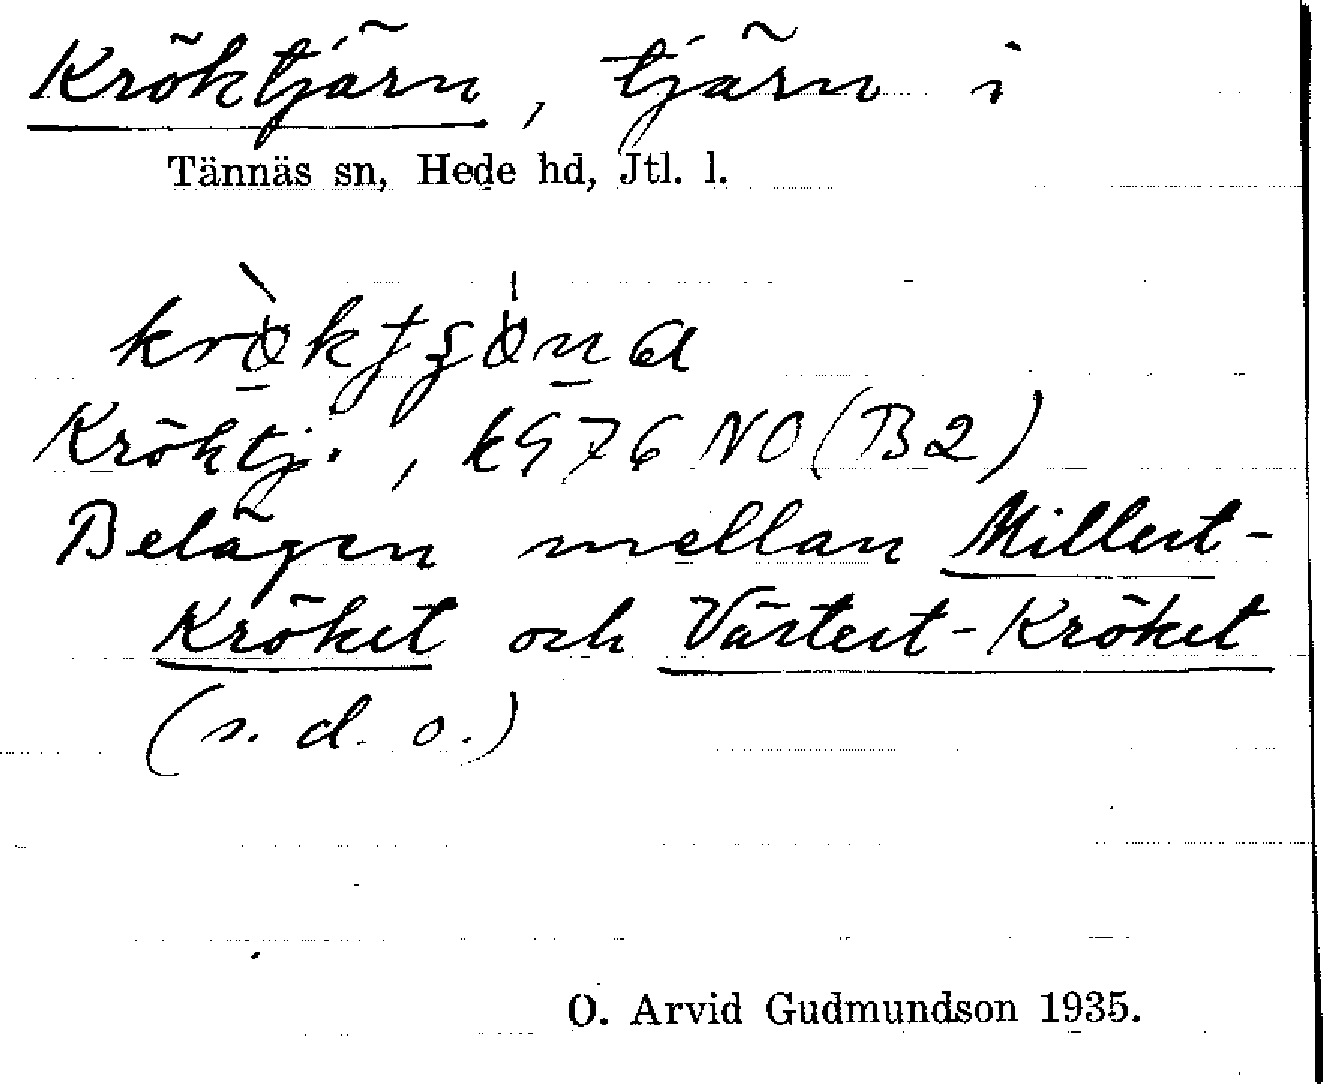 Kröktjärn, tjärn i
Tännäs sn, Hede hd, Jtl. l.
Kröktj., k976 NO (B2)
Belägen mellan Millert-
Kröket och Värtert-Kröket
(s. d. o.)
O. Arvid Gudmundson 1935.